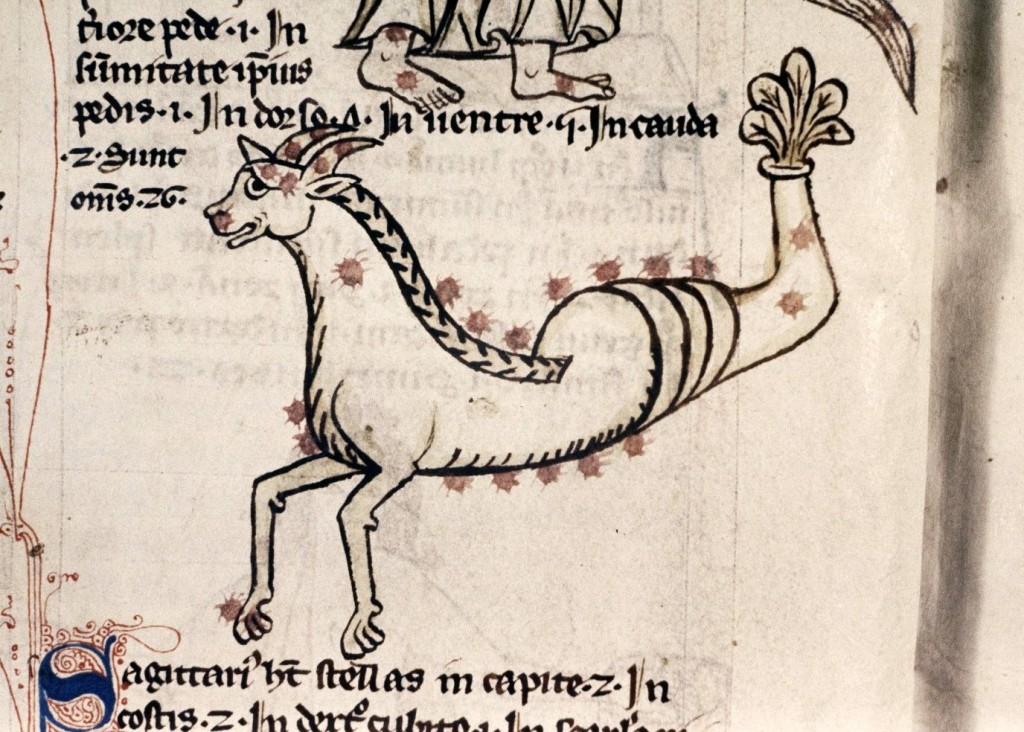 t̄iore pede ·i· In
sūmitate ip̄ius
pedis ·i· In dorso ·4· In uentre ·q· In cauda
·2· Sunt
om̄s ·26·
Sagittariꝰ ht̄ stellas in capite ·2· In
costis ·2· In dext̄ cubito ·i· In